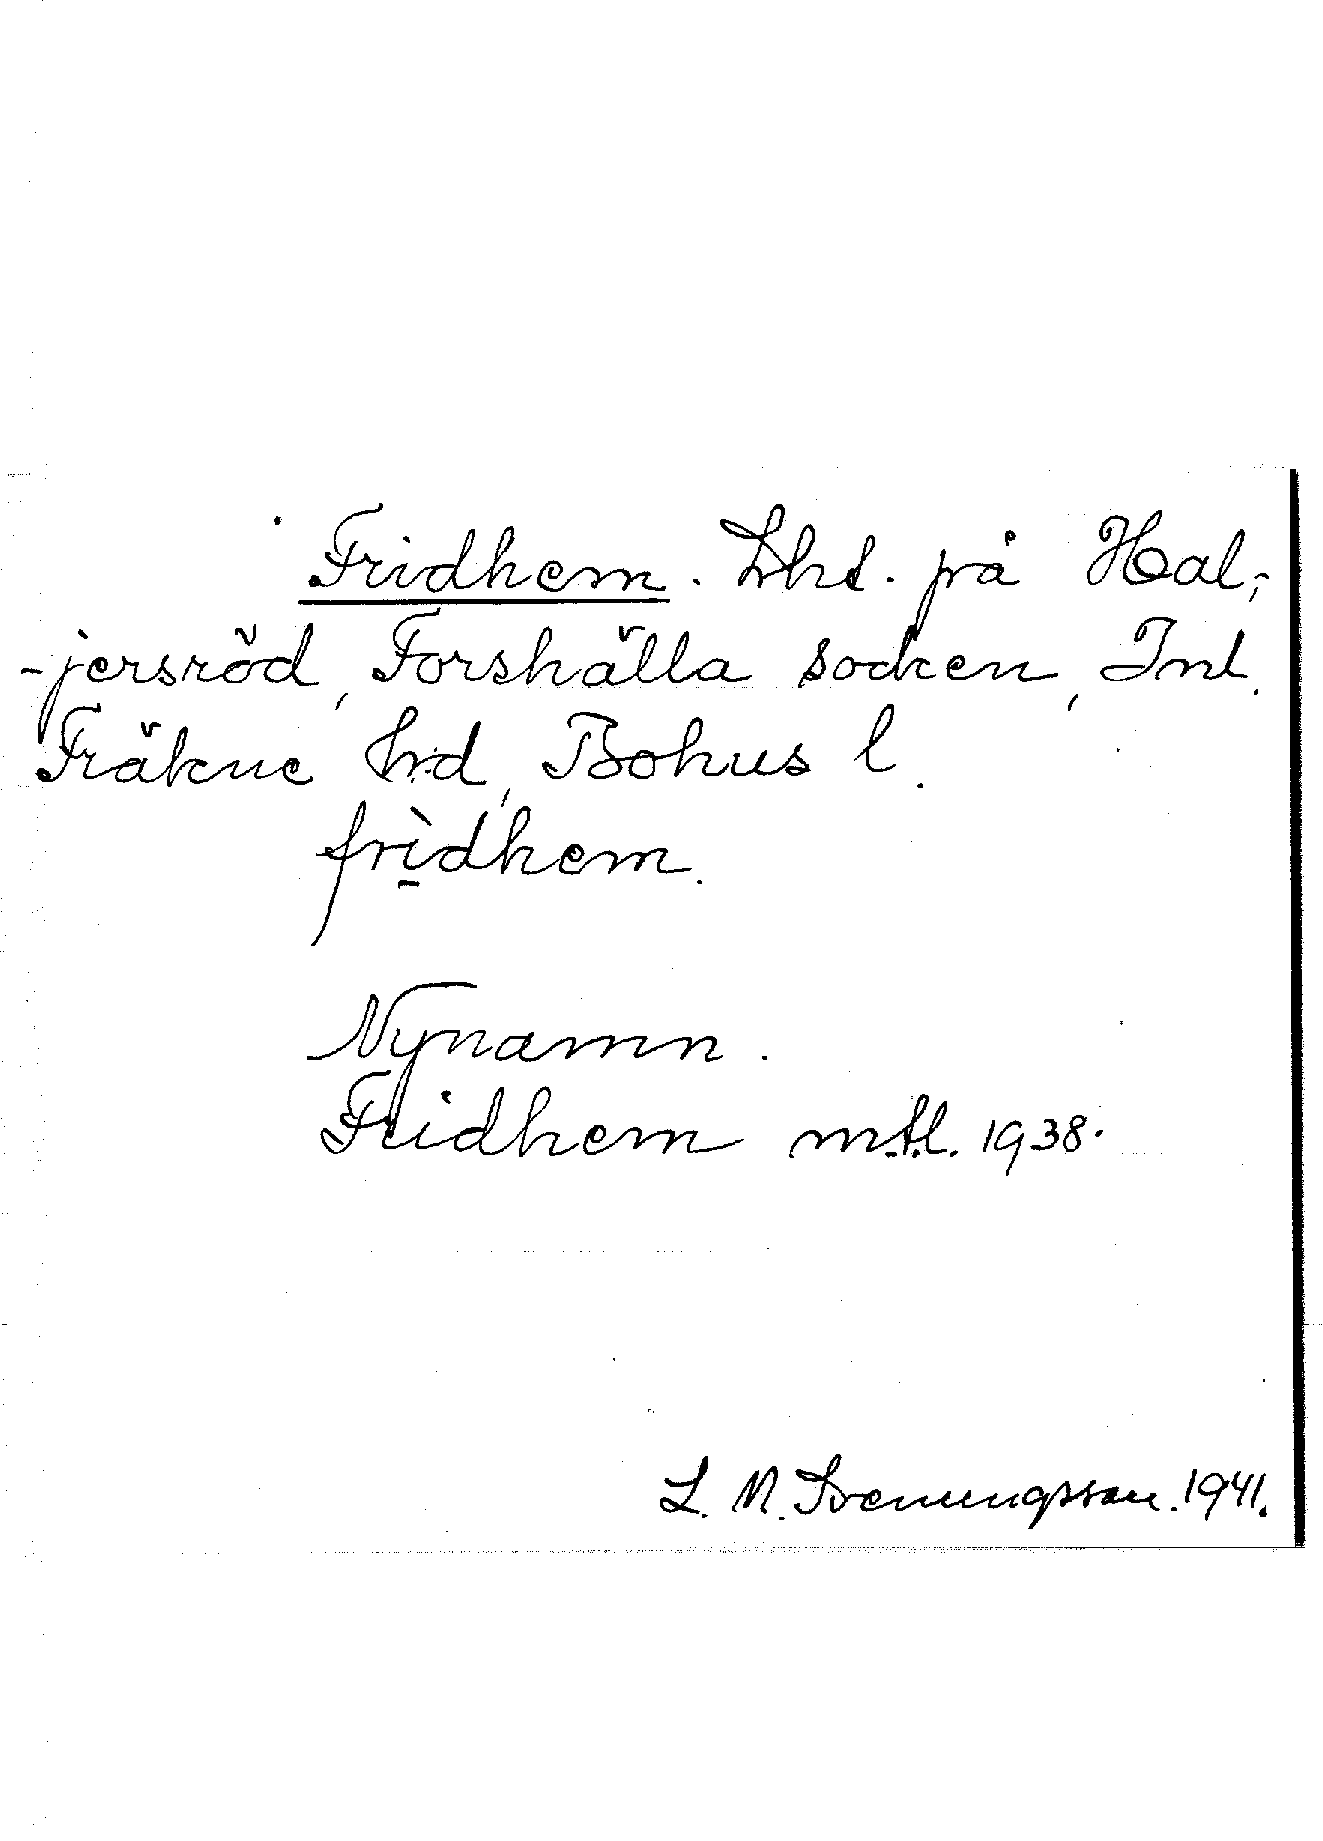 Fridhem. Lht. på Hal-
-jersröd, Forshälla socken, Inl.
Fräkne hrd, Bohus l.
frìdhem.
Nynamn.
Fridhem mtl. 1938.
L. M. Svenungsson. 1941.